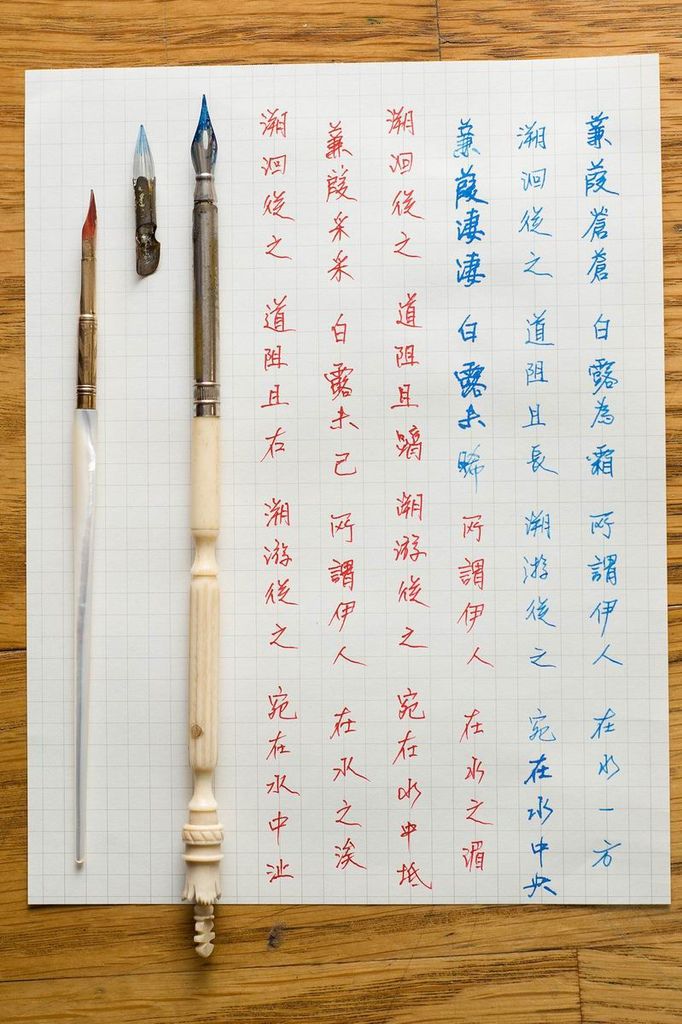 蒹葭蒼蒼 白露為霜 所謂伊人 在水一方
溯洄從之 道阻且長 溯游從之 宛在水中央
蒹葭淒淒 白露未晞 所謂伊人 在水之湄
溯洄從之 道阻且躋 溯游從之 宛在水中坻
蒹葭采采 白露未已 所謂伊人 在水之涘
溯洄從之 道阻且右 溯游從之 宛在水中沚